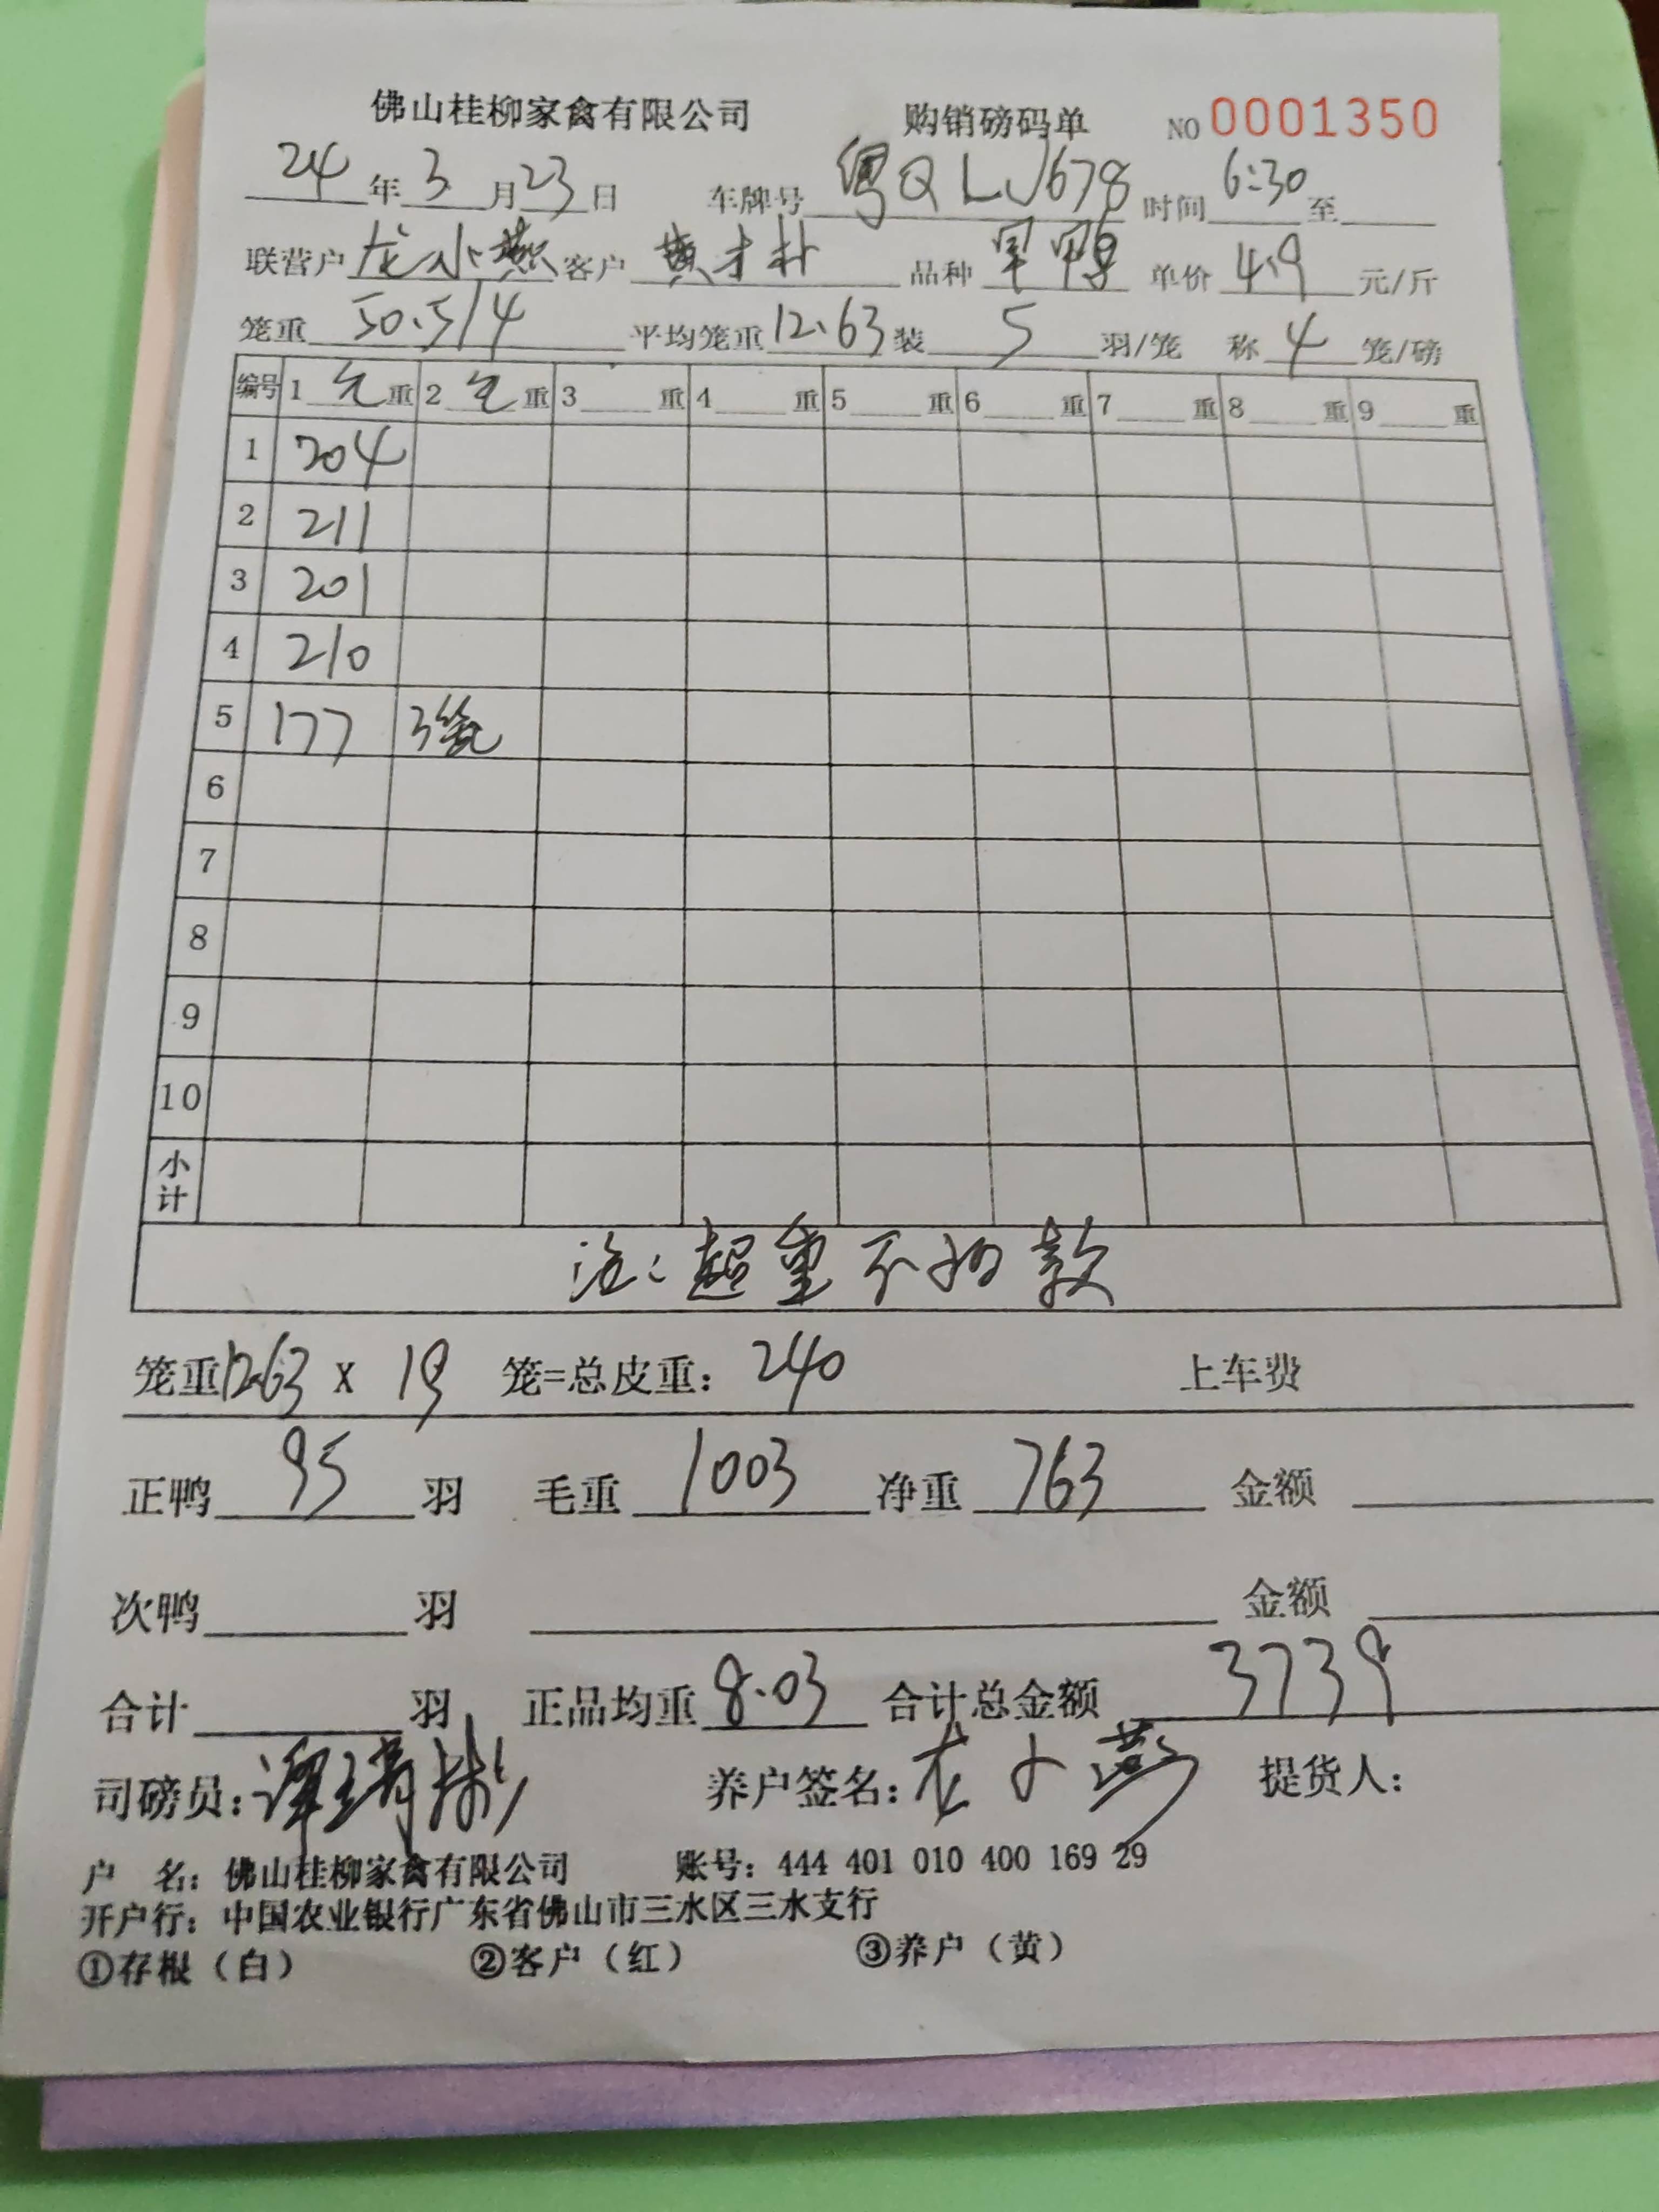 佛山桂柳家禽有限公司 购销磅码单 NO 0001350
24年3月23日 车牌号粤QLJ678 时间6:30至
联营户龙小燕 客户黄才 品种 鸭 单价4.9元/斤
笼重50.5/4 平均笼重12.63 装5羽/笼 称4笼/磅
编号 1毛重 2毛重 3重 4重 5重 6重 7重 8重 9重
1 204
2 211
3 201
4 210
5 177 3笼
6
7
8
9
10
小计
注:超重不扣款
笼重12.63 X 19 笼=总皮重:240 上车费
正鸭95羽 毛重1003 净重763 金额
次鸭 羽 金额
合计 羽 正品均重8.03 合计总金额3739
司磅员:谭 养户签名:龙小燕 提货人:
户 名:佛山桂柳家禽有限公司 账号:444 401 010 400 169 29
开户行:中国农业银行广东省佛山市三水区三水支行
①存根(白) ②客户(红) ③养户(黄)